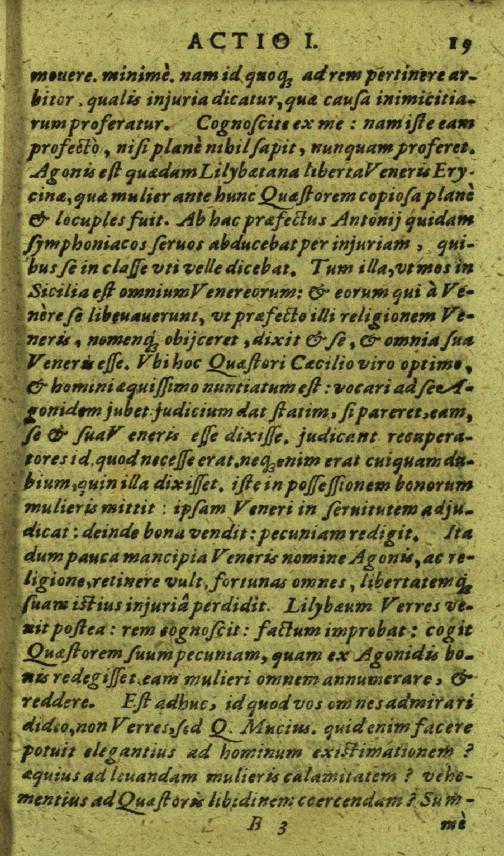 ACTIO I. 19
mouere. minimè. nam id quoq; ad rem pertinere ar-
bitor. qualis injuria dicatur, quæ causa inimicitia-
rum proferatur. Cognoscite ex me: nam iste eam
profectò, nisi planè nihil sapit, nunquam proferet.
Agonis est quædam Lilybætana liberta Veneris Ery-
cinæ, quæ mulier ante hunc Quæstorem copiosa planè
& locuples fuit. Ab hac præfectus Antonij quidam
symphoniacos seruos abducebat per injuriam, qui-
bus se in classe vti velle dicebat. Tum illa, vt mos in
Sicilia est omnium Venereorum: & eorum qui à Ve-
nère se libeuauerunt, vt præfecto illi religionem Ve-
neris, nomenq; obijceret, dixit & se, & omnia sua
Veneris esse. Vbi hoc Quæstori Cæcilio viro optimo,
& homini æquissimo nuntiatum est: vocari ad se A-
gonidem jubet: judicium dat statim, si pareret, eam,
se & sua V eneris esse dixisse. judicant recupera-
tores id, quod necesse erat. neq; enim erat cuiquam du-
bium, quin illa dixisset. iste in possessionem bonorum
mulieris mittit: ipsam Veneri in seruitutem adju-
dicat: deinde bona vendit: pecuniam redigit. Ita
dum pauca mancipia Veneris nomine Agonis, ac re-
ligione, retinere vult, fortunas omnes, libertatemq;
suam istius injuriâ perdidit. Lilybæum Verres ve-
nit postea: rem cognoscit: factum improbat: cogit
Quæstorem suum pecuniam, quam ex Agonidis bo-
nis redegisset, eam mulieri omnem annumerare, &
reddere. Est adhuc, id quod vos omnes admirari
dideo, non Verres, sed Q. Mucius. quid enim facere
potuit elegantius ad hominum existimationem?
æquius ad leuandam mulieris calamitatem? vehe-
mentius ad Quæstoris libidinem coercendam? Sum-
B 3 mè